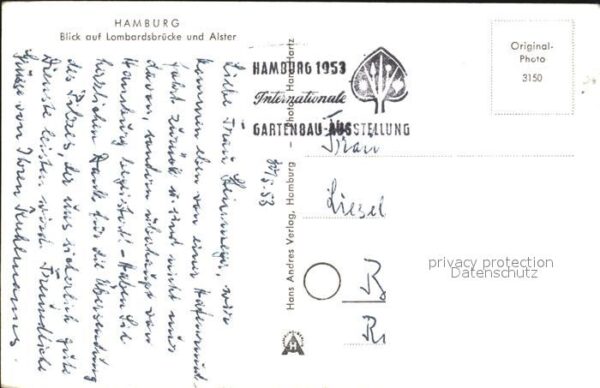 HAMBURG
Blick auf Lombardsbrücke und Alster
Original-
Photo
3150
HAMBURG 1953
Internationale
GARTENBAU-AUSSTELLUNG
Liebe Frau wir
kommen eben von einer Hafenrund-
fahrt zurück u. sind nicht nur
davon, sondern überhaupt von
Hamburg begeistert! - Haben Sie
herzlichen Dank für die Übersendung
des der uns sicherlich gute
Dienste leisten wird. Freundliche
Grüße von Ihren
53
Hans Andres Verlag, Hamburg - Photo: Hans Hartz
Frau
Liesel
R
R
privacy protection
Datenschutz